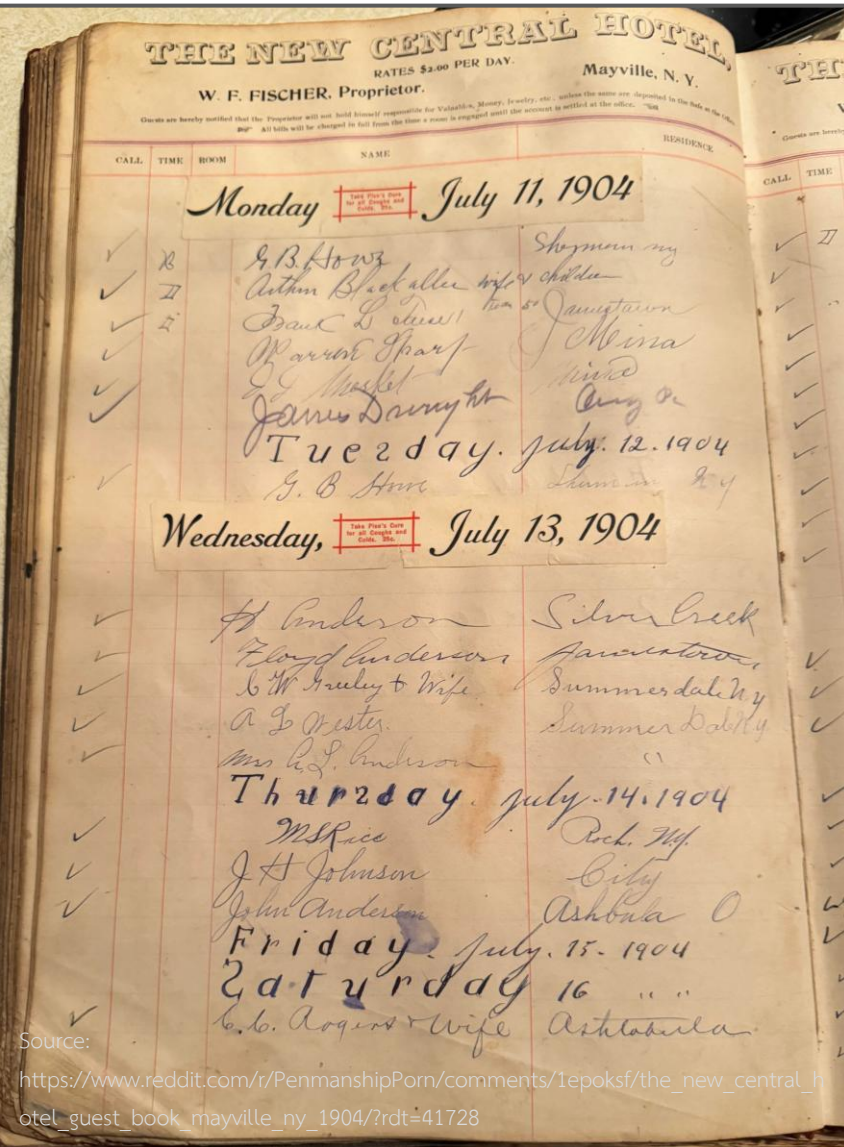 THE NEW CENTRAL HOTEL,
RATES $2.00 PER DAY.
W. F. FISCHER, Proprietor. Mayville, N. Y.
Guests are hereby notified that the Proprietor will not hold himself responsible for Valuables, Money, Jewelry, etc., unless the same are deposited in the Safe at the Office.
All bills will be charged in full from the time a room is engaged until the account is settled at the office.
CALL TIME ROOM NAME RESIDENCE
Monday Take Piso's Cure for all Coughs and Colds. 25c. July 11, 1904
G. B. Howe Sherman ny
Arthur Blackaller wife & children
Frank L Jamestown
Warren Sharf Mina
Market Mina
James Dwight
Tuesday. July. 12. 1904
G. B Howe Sherman N y
Wednesday, Take Piso's Cure for all Coughs and Colds. 25c. July 13, 1904
H Anderson Silver Creek
Floyd Anderson Jamestown
C W Greeley & Wife Summerdale Ny
A L Wester. Summer Dale Ny
Mrs A. L. Anderson "
Thursday. July. 14. 1904
M S Rice Roch. N.Y.
J H Johnson City
John Anderson Ashbula O
Friday. July. 15. 1904
Saturday 16 " "
C. C. Rogers & Wife Ashtabula
TH
Guests are hereby
CALL TIME
Source:
https://www.reddit.com/r/PenmanshipPorn/comments/1epoksf/the_new_central_h
otel_guest_book_mayville_ny_1904/?rdt=41728